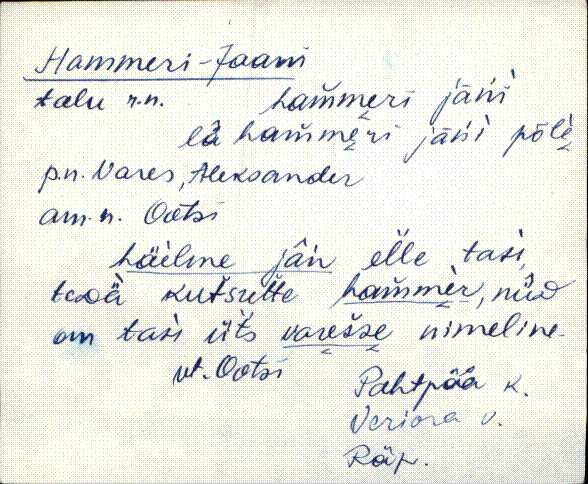 Hammeri-Jaani
talu r.n. hammeri jäńi
lä hammeri jäńi põlè
p.n. Vares, Aleksander
am.n. Ootsi
häelme jäń elle tasi,
teda kutšutte hammèr, nüüd
om tasi üt́s varesse nimeline.
vt. Ootsi
Pahtpää k.
Veriora v.
Räp.